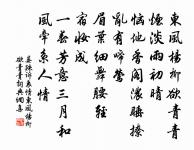 東風楊柳欲青青
煙淡雨初晴
惱他香閣濃睡撩
亂有啼鶯
眉葉細舞腰輕
宿妝成
一春芳意三月和
風牽系人情
晏殊訴衷情東風楊柳
欲青青詞典網